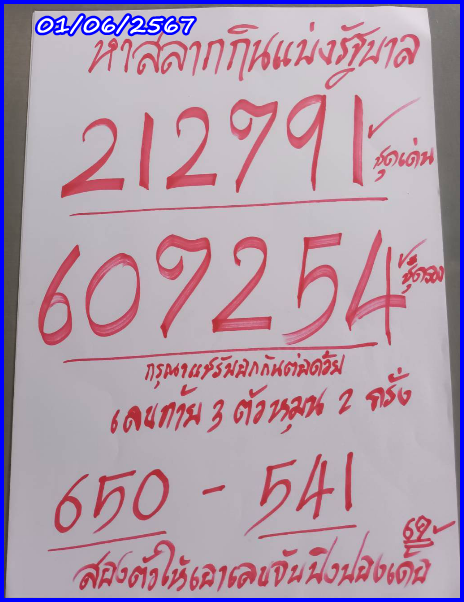 01/06/2567
หาสลากกินแบ่งรัฐบาล
212791 ชุดเด่น
607254 ชุดรอง
กรุณาแชร์บอกกันต่อด้วย
เลขท้าย 3 ตัวหมุน 2 ครั้ง
650 - 541
สองตัวให้เอาเลขจับปิงปองเด้อ